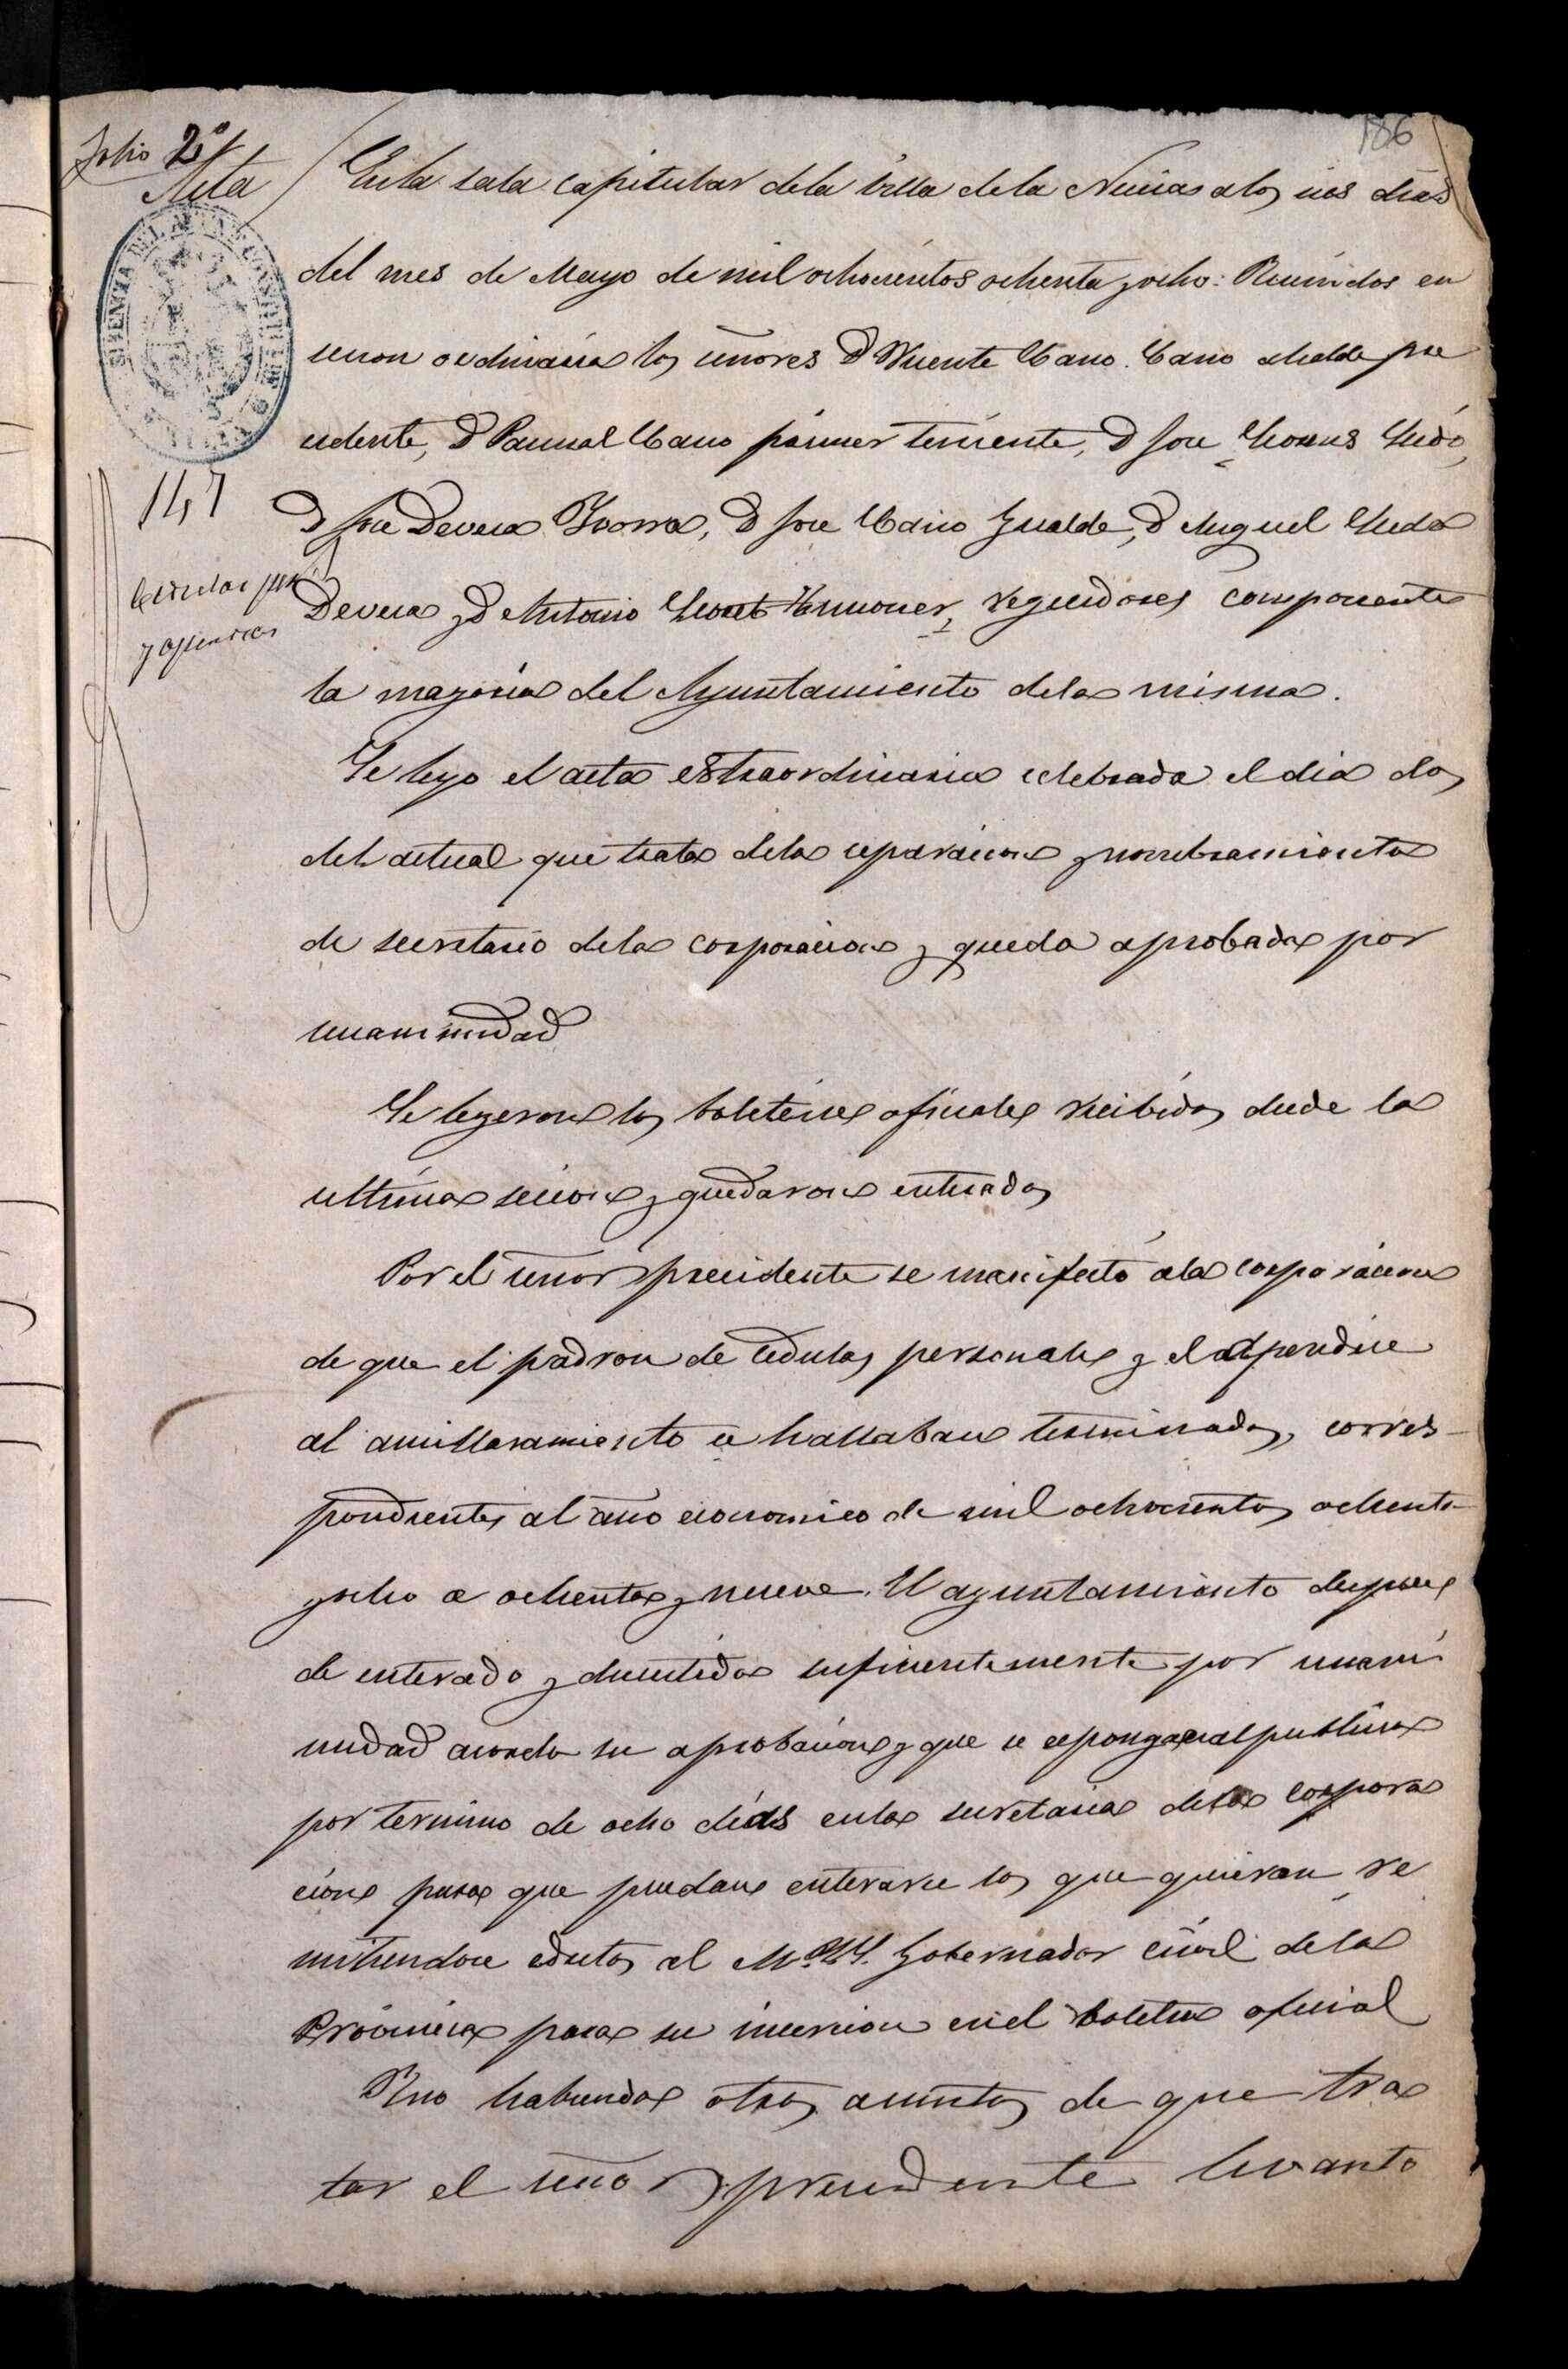 186
Folio 2º
Acta
147
Cedulas per
y apendice
En la sala capitular dela villa dela Nucia a los seis dias
del mes de Mayo de mil ochocientos ochenta y ocho: Reunidos en
secion ordinaria los señores D Vicente Cano Cano alcalde pre
cidente, D Pascual Cano primer teniente, D Jose
D Jose Devesa Yvorra, D Jose Cano Gualde, D Miguel
Devesa y D Antonio regidores componentes
la mayoria del Ayuntamiento dela misma.
Se leyo el acta estraordinaria celebrada el dia dos
del actual que trata dela separacion y nombramiento
de secretario dela corporacion y queda aprobada por
unanimidad
Se leyeron los boletines oficiales recibidos desde la
ultima secion y quedaron enterados
Por el señor precidente se manifestó ala corporacion
de que el padron de cedulas personales y el apendice
al amillaramiento se hallaban terminados, corres-
pondientes al año economico de mil ochocientos ochenta
y ocho a ochenta y nueve. El ayuntamiento despues
de enterado y discutido suficientemente por unani
midad acordo su aprobacion y que se esponga al publico
por termino de ocho dias enla secretaria dela corpora
cion para que puedan enterarse los que quieran re
mitiendose edictos al M. Y. S. Gobernador civil dela
Provincia para su insercion en el boletin oficial
Y no habiendo otros asuntos de que tra
tar el señor precidente levanto